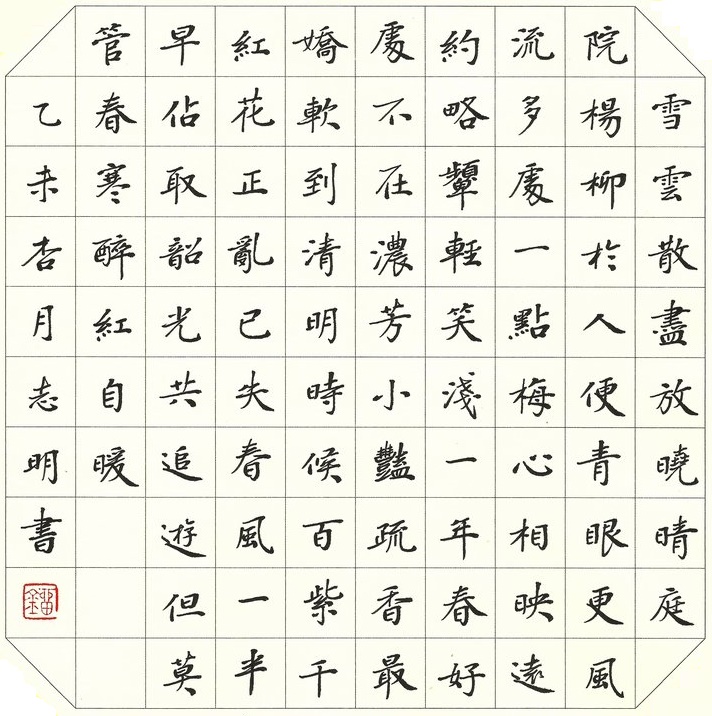 雪雲散盡放曉晴庭
院楊柳於人便青眼更風
流多處一點梅心相映遠
約略顰輕笑淺一年春好
處不在濃芳小豔疏香最
嬌軟到清明時候百紫千
紅花正亂已失春風一半
早佔取韶光共追遊但莫
管春寒醉紅自暖
乙未杏月志明書